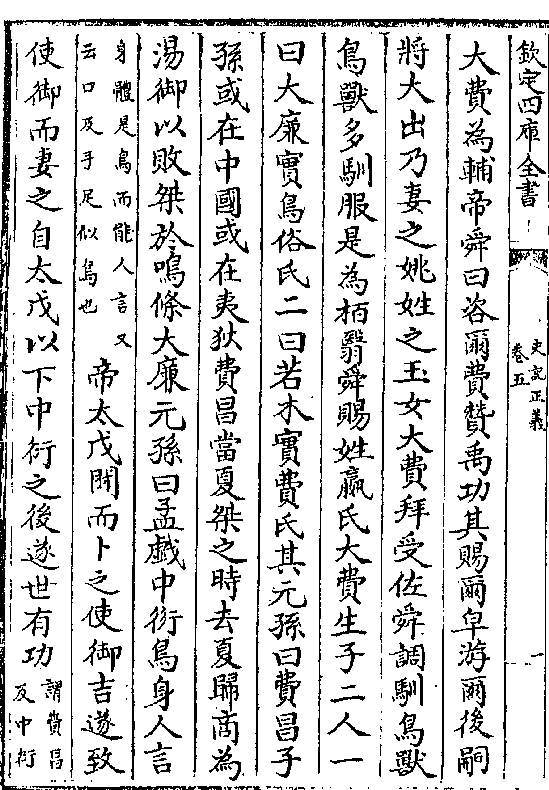 欽定四庫全書
史記正義
卷五
一
大費為輔帝舜曰咨爾費贊禹功其賜爾皁游爾後嗣
將大出乃妻之姚姓之玉女大費拜受佐舜調馴鳥獸
鳥獸多馴服是為栢翳舜賜姓嬴氏大費生子二人一
曰大廉實鳥俗氏二曰若木實費氏其元孫曰費昌子
孫或在中國或在夷狄費昌當夏桀之時去夏歸商為
湯御以敗桀於鳴條大廉元孫曰孟戲中衍鳥身人言
身體是鳥而能人言又
云口及手足似鳥也
帝太戊聞而卜之使御吉遂致
使御而妻之自太戊以下中衍之後遂世有功
謂費昌
及中衍